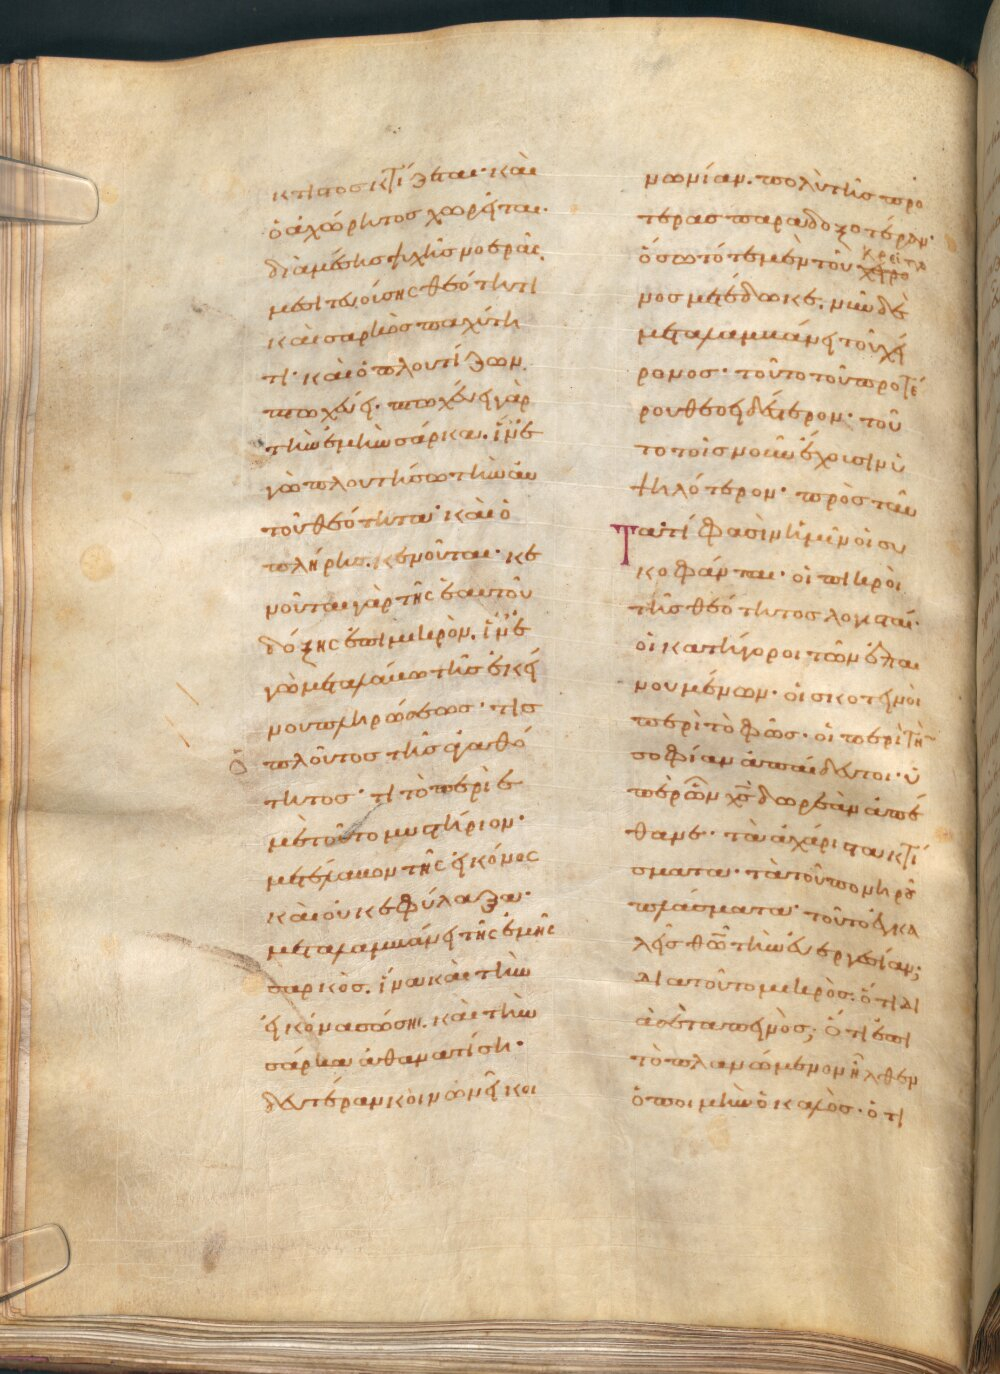 κτιστος κτίζεται· καὶ
ὁ ἀχώρητος χωρεῖται·
διὰ μέσης ψυχῆς νοερᾶς.
μεσιτευούσης θεότητι
καὶ σαρκὸς παχύτη
τι· καὶ ὁ πλουτίζων.
πτωχεύει· πτωχεύει γὰρ
τὴν ἐμὴν σάρκα. ἵν' ἐ
γὼ πλουτήσω τὴν αὐ
τοῦ θεότητα· καὶ ὁ
πλήρης. κενοῦται· κε
νοῦται γὰρ τῆς ἑαυτοῦ
δόξης ἐπὶ μικρὸν. ἵν' ἐ
γὼ μεταλάβω τῆς ἐκεί
νου πληρώσεως· τίς
ὁ
πλοῦτος τῆς ἀγαθό
τητος· τί τὸ περὶ ἐ
μὲ τοῦτο μυστήριον·
μετέλαβον τῆς εἰκόνος
καὶ οὐκ ἐφύλαξα·
μεταλαμβάνει τῆς ἐμῆς
σαρκὸς. ἵνα καὶ τὴν
εἰκόνα σώσῃ. καὶ τὴν
σάρκα ἀθανατίσῃ·
δευτέραν κοινωνεῖ κοι
νωνίαν. πολὺ τῆς προ
τέρας παραδοξοτέραν·
ὅσω τότε μὲν τοῦ χείρο
κρείττο
νος μετέδωκε. νῦν δὲ
μεταλαμβάνει τοῦ χεί
ρονος· τοῦτο τοῦ προτέ
ρου θεοειδέστερον· τοῦ
το τοῖς νοῦν ἔχουσιν ὑ
ψηλότερον· πρὸς ταῦ
Τα τί φασὶν ἡμῖν οἱ συ
κοφάνται· οἱ πικροὶ
τῆς θεότητος λογισταί·
οἱ κατήγοροι τῶν ἐπαι
νουμένων. οἱ σκοτεινοὶ
περὶ τὸ φῶς· οἱ περὶ τὴν
σοφίαν ἀπαίδευτοι· ὑ
πὲρ ὧν χς δωρεὰν ἀπέ
θανε· τὰ ἀχάριστα κτί
σματα· τὰ τοῦ πονηροῦ
πλάσματα· τοῦτο ἐγκα
λεῖς θῶ τὴν εὐεργεσίαν;
διατοῦτο μικρὸς. ὅτι δι
ὰ σὲ ταπεινὸς; ὅτι ἐπὶ
τὸ πλανώμενον ἦλθεν
ὁ ποιμὴν ὁ καλὸς· ὁ τι